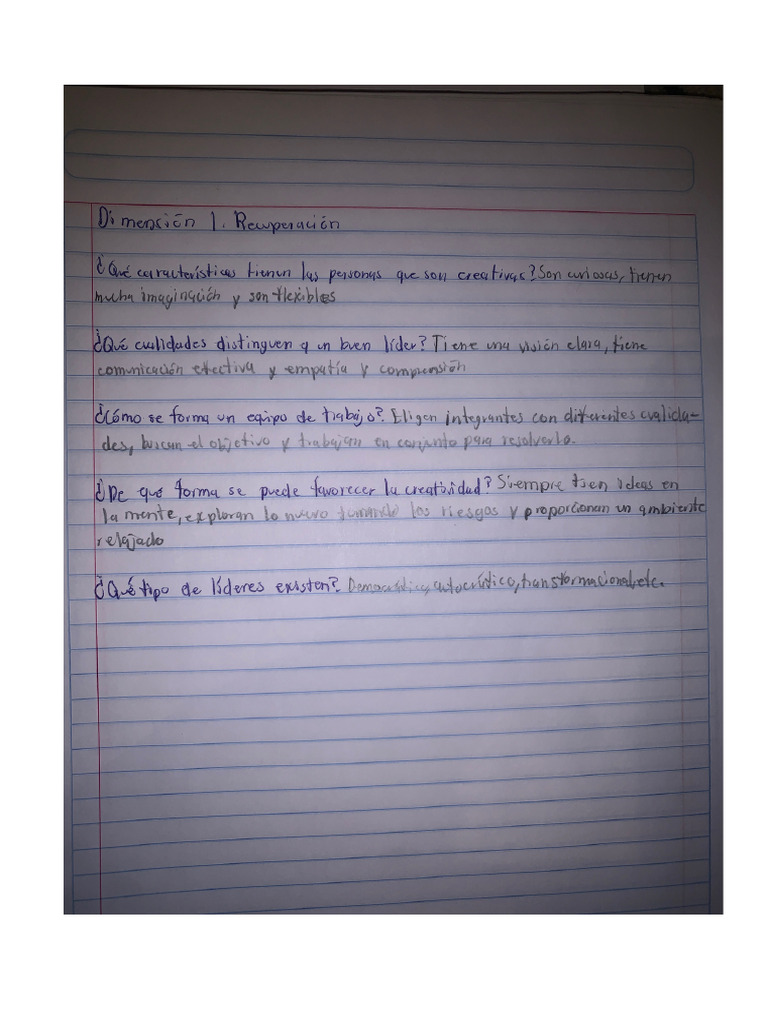 Dimensión 1. Recuperación
¿Qué características tienen las personas que son creativas? Son curiosas, tienen
mucha imaginación y son flexibles
¿Qué cualidades distinguen a un buen líder? Tiene una visión clara, tiene
comunicación efectiva y empatía y comprensión
¿Cómo se forma un equipo de trabajo? Eligen integrantes con diferentes cualida-
des, buscan el objetivo y trabajan en conjunto para resolverlo.
¿De qué forma se puede favorecer la creatividad? Siempre tien ideas en
la mente, exploran lo nuevo tomando los riesgos y proporcionan un ambiente
relajado
¿Qué tipo de líderes existen? Democrático, autocrítico, transformacional, etc.